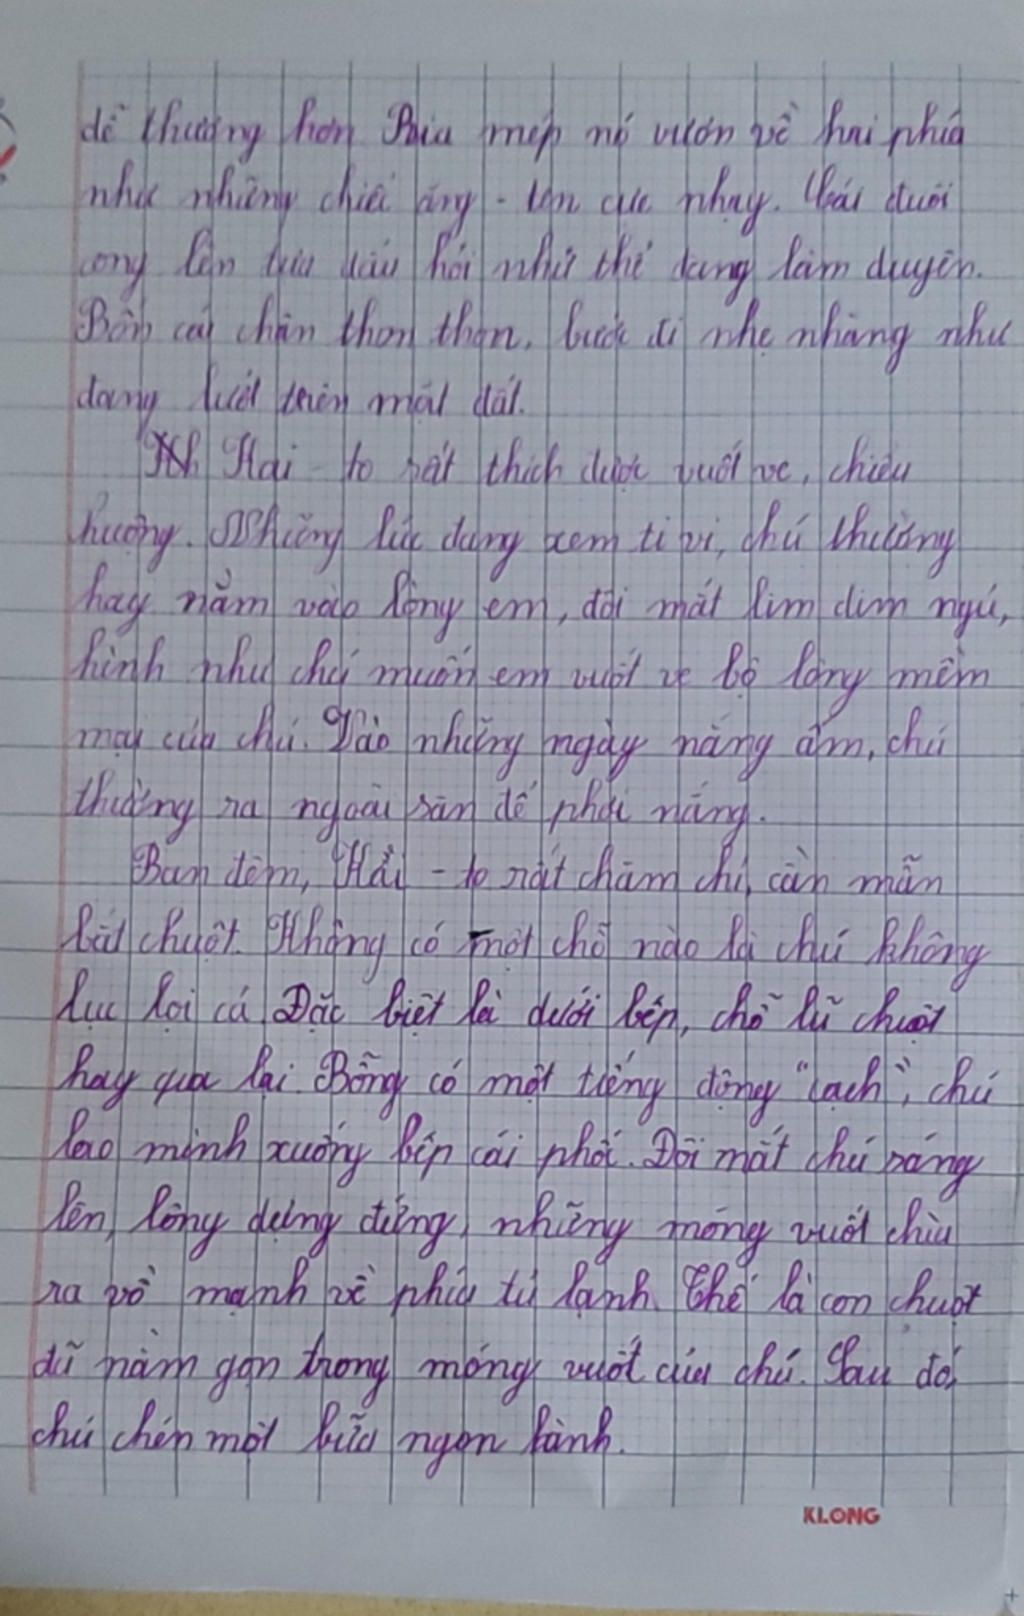 dễ thương hơn Ria mép nó vươn về hai phía
như những chiếc ăng - ten cực nhạy. Cái đuôi
cong lên tựa dấu hỏi như thể đang làm duyên.
Bốn cái chân thon thon, bước đi nhẹ nhàng như
đang lướt trên mặt đất.
Hai - to rất thích được vuốt ve, chiều
hướng. Những lúc đang xem ti vi, chú thường
hay nằm vào lòng em, đôi mắt lim dim ngủ,
hình như chú muốn em vuốt ve bộ lông mềm
mại của chú. Vào những ngày nắng ấm, chú
thường ra ngoài sân để phơi nắng.
Ban đêm, Hải - to rất chăm chỉ, cần mẫn
bắt chuột. Không có một chỗ nào là chú không
lục lọi cả Đặc biệt là dưới bếp, chỗ lũ chuột
hay qua lại. Bỗng có một tiếng động "cạch", chú
lao mình xuống bếp cái phốc. Đôi mắt chú sáng
lên, lông dựng đứng, những móng vuốt chìa
ra vồ mạnh về phía tủ lạnh. Thế là con chuột
đã nằm gọn trong móng vuốt của chú. Sau đó,
chú chén một bữa ngon lành.
KLONG